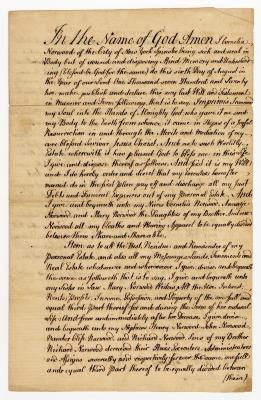 In the Name of God Amen I Cornelia
Norwood of the City of New York Spinster being sick and weak in
Body but of sound and disposing Mind Memory and Understand-
ing (blessed be God for the same) do this sixth Day of August in
the Year of our Lord One Thousand seven Hundred and Seventy
two make publish and declare this my last Will and Testament
in Manner and Form following, that is to say, Imprimis I
my Soul into the Hands of Almighty God who gave it me and
my Body to the Earth from whence it came in Hopes of a joyful
Resurrection in and through the Merits and Mediation of my
ever blessed Saviour Jesus Christ, And as to such Worldly
Estate wherewith it has pleased God to bless me in this Life
I give and dispose thereof as follows. And first it is my Will
and I do hereby order and direct that my Executors hereafter
named do in the first place pay off and discharge all my just
Debts and Funeral Expences out of my Personal Estate. And
I give and bequeath unto my Nieces Cornelia Norwood,
Norwood, and Mary Norwood the Daughters of my Brother Andrew
Norwood all my Cloaths and Wearing Apparel to be equally divided
between them Share and Share alike.
Item as to all the Rest Residue and Remainder of my
personal Estate, and also all my Messuages Lands Tenements and
Real Estate whatsoever and wheresoever I give devise and bequeath
the same as followeth that is to say, I give and bequeath unto
my Sister in Law Mary Norwood Widow All the Use Interest
Rents, Profits, Income, Possession, and Property of the one full and
equal third Part thereof for and during the Term of her natural
Life. And from and immediately after her Decease I give devise
and bequeath unto my Nephews Henry Norwood John Norwood,
Norwood, and Richard Norwood Sons of my Brother
Richard Norwood deceased their Heirs, Executors, Administrators
and Assigns severally and respectively forever the same one full
and equal third Part thereof to be equally divided between
(them)